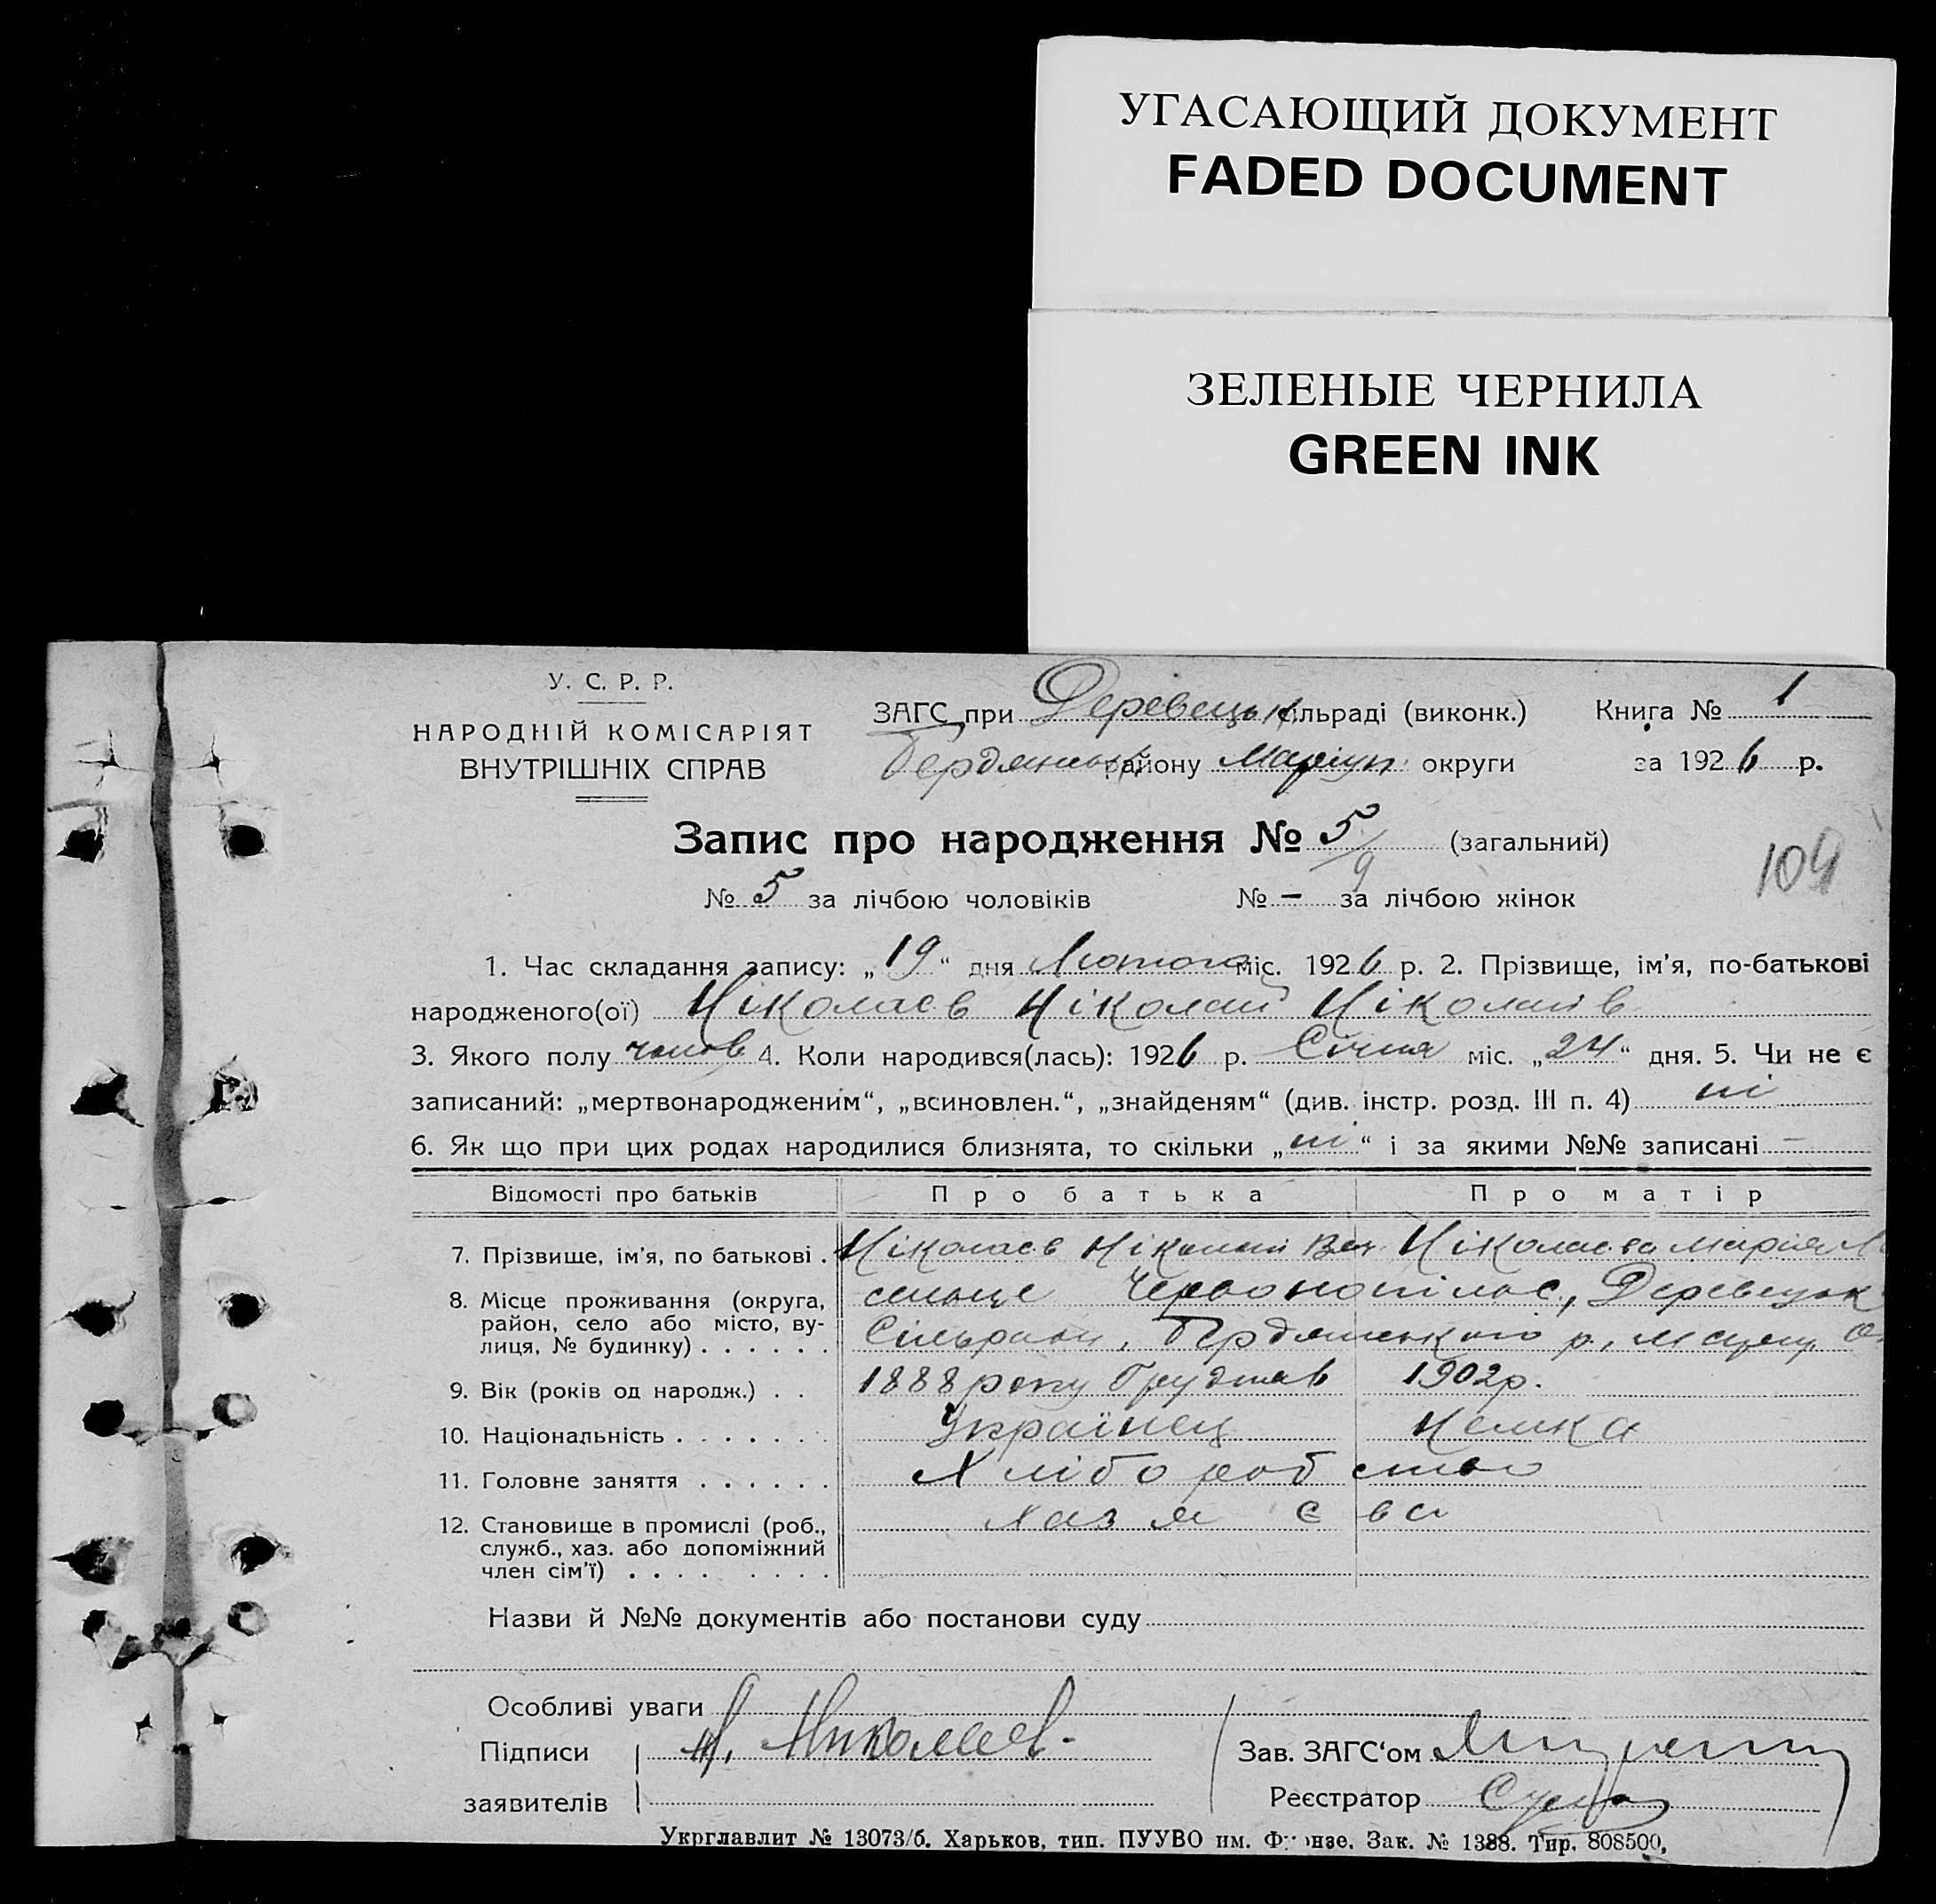 УГАСАЮЩИЙ ДОКУМЕНТ
FADED DOCUMENT
ЗЕЛЕНЫЕ ЧЕРНИЛА
GREEN INK
У. С. Р. Р.
НАРОДНІЙ КОМІСАРІЯТ
ВНУТРІШНІХ СПРАВ
ЗАГС при Деревецьк сільраді (виконк.) Книга № 1
Бердянськ району Маріуп. округи за 1926 р.
Запис про народження № 5/9 (загальний)
104
№ 5 за лічбою чоловіків № – за лічбою жінок
1. Час складання запису: „19“ дня Лютого міс. 1926 р. 2. Прізвище, ім’я, по-батькові
народженого(ої) Ніколаєв Ніколай Ніколаїв
3. Якого полу чолов 4. Коли народився(лась): 1926 р. Січня міс. „24“ дня. 5. Чи не є
записаний: „мертвонародженим“, „всиновлен.“, „знайденям“ (див. інстр. розд. III п. 4) ні
6. Як що при цих родах народилися близнята, то скільки „ні“ і за якими №№ записані –
Відомості про батьків Про батька Про матір
7. Прізвище, ім’я, по батькові . Ніколаєв Ніколай Ніколаєва Марія
8. Місце проживання (округа, селище Деревецьк
район, село або місто, ву- Сільради, Бердянського р.,
лиця, № будинку) . . . . . .
9. Вік (років од народж.) . . 1888 року 1902р.
10. Національність . . . . . . . Українец Немка
11. Головне заняття . . . . . . Хліборобство
12. Становище в промислі (роб., Хазяєва
служб., хаз. або допоміжний
член сім’ї) . . . . . . . .
Назви й №№ документів або постанови суду
Особливі уваги
Підписи Н. Николаев.
Зав. ЗАГС‘ом
заявителів
Реєстратор
Укрглавлит № 13073/б. Харьков, тип. ПУУВО им. Фрунзе. Зак. № 1388. Тир. 808500,